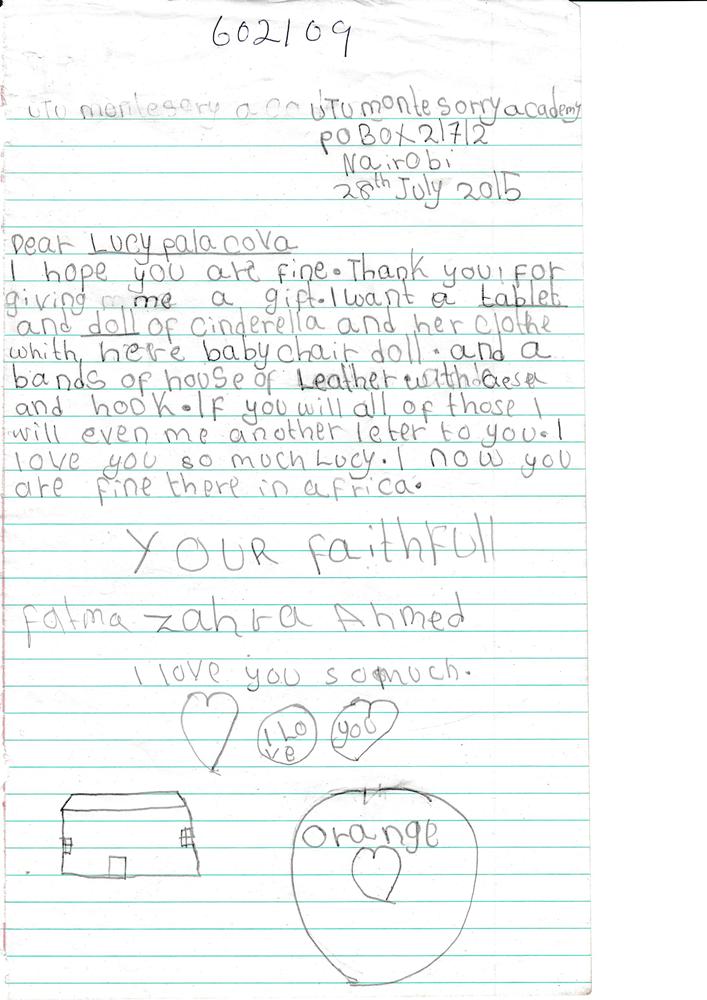 602109
UTU montesery a ca UTU monte sorry academy
PO BOX 21712
NairObi
28th July 2015
Dear Lucy pala cova
I hope you are fine. Thank you! For
giving me a gift. I want a tablet
and doll of cinderella and her clothe
whith here baby chair doll. and a
bands of house of Leather with
and hook. If you will all of those I
will even me another leter to you. I
love you so much Lucy. I now you
are fine there in africa.
YOUR FaithFull
fatma zahra Ahmed
I love you so much.
I Lo
ve
you
orange